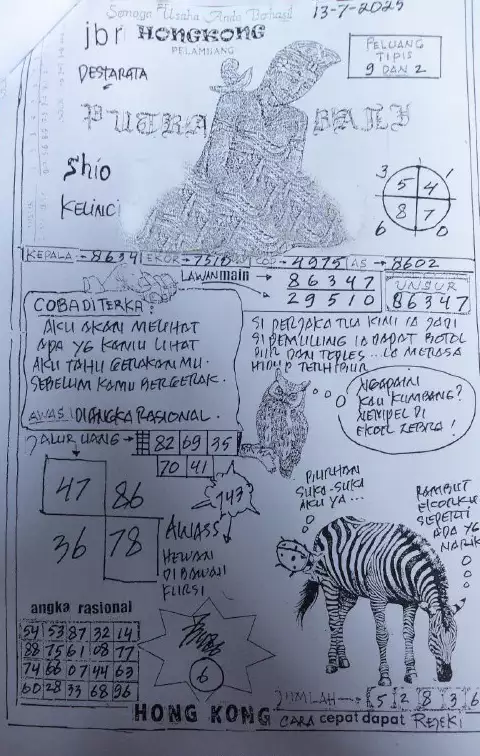 Semoga Usaha Anda Berhasil
13-7-2025
jbr HONGKONG
PELAMBANG
DESTARATA
PELUANG
TIPIS
9 DAN 2
PUTRA BALI
Shio
KELINCI
3 1
5 4
8 7
6 0
KEPALA-8634 EKOR-7510 COP-4975 AS-8602
LAWAN main → 86347
29510
UNSUR
86347
COBA DITERKA:
AKU AKAN MELIHAT
APA YG KAMU LIHAT
AKU TAHU GERAKAN MU.
SEBELUM KAMU BERGERAK.
AWAS DIANGKA RASIONAL.
SI PERJAKA TUA KINI IA JADI
SI PEMULUNG IA DAPAT BOTOL
DAN TOPLES... IA MERASA
HIDUP
NGAPAIN
KAU KUMBANG?
NEMPEL DI
EKOR ZEBRA!
JALUR UANG → 82 69 35
70 41
743
47 86
36 78
AWASS
HEWAN
DIBAWAH
KURSI
PILIHAN
SUKA-SUKA
AKU YA...
RAMBUT
EKORKU
SEPERTI
ADA YG
NARIK
angka rasional
54 53 87 32 14
88 75 61 08 77
74 66 07 44 63
60 28 33 68 96
6
JUMLAH → 5 2 8 3 6
HONG KONG CARA cepat dapat REJEKI